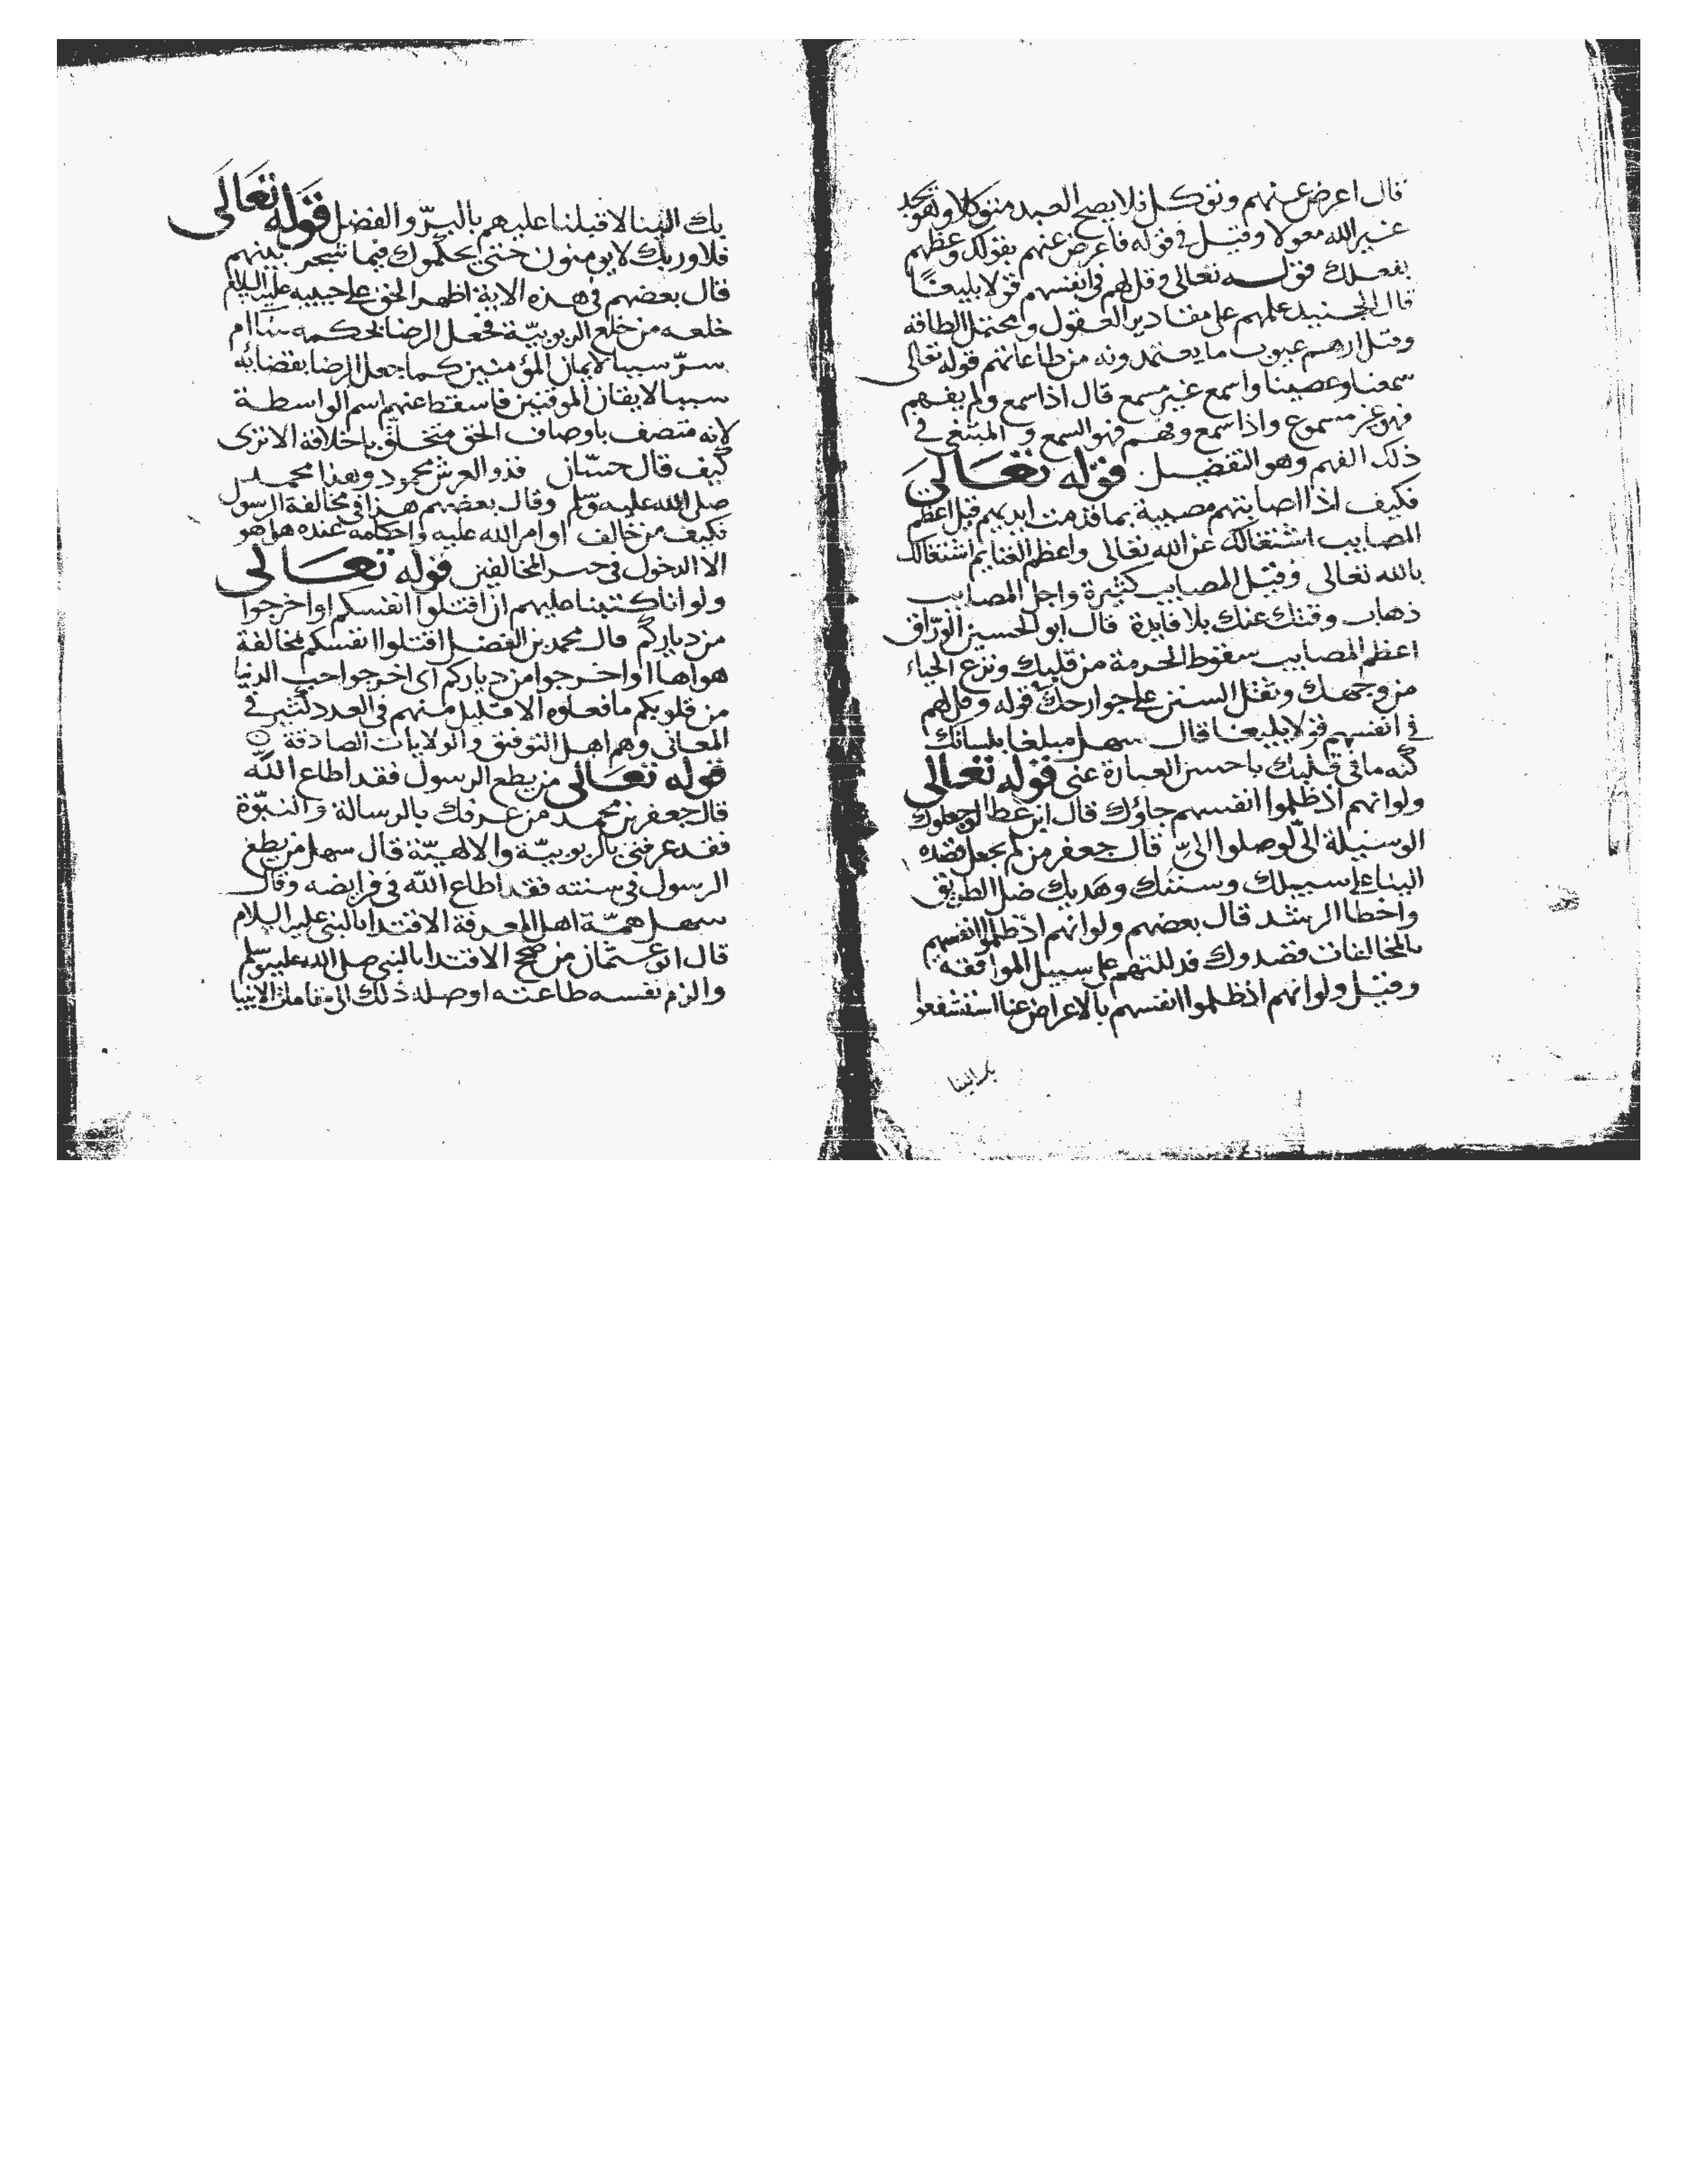 قال اعرض عنهم وتوكل فلا يصح العبد متوكلا وهو يجد
غير الله معولا وقيل في قوله فاعرض عنهم بقولك وعظهم
بفعلك قوله تعالى وقل لهم في انفسهم قولا بليغا
قال الجنيد علهم على مقادير العقول ومحتمل الطاقة
وقيل ارهم عيوب ما يعتمدونه من طاعاتهم قوله تعالى
سمعنا وعصينا واسمع غير مسمع قال اذا سمع ولم يفهم
فهو غير مسموع واذا سمع وفهم فهو السمع و المبتغى في
ذلك الفهم وهو التفضيل قوله تعالى
فكيف اذا اصابتهم مصيبة بما قدمت ايديهم قيل اعظم
المصايب اشتغالك عن الله تعالى واعظم الغنايم اشتغالك
بالله تعالى وقيل المصايب كثيرة واجل المصايب
ذهاب وقتك عنك بلا فايدة قال ابو الحسين الوراق
اعظم المصايب سقوط الحرمة من قلبك ونزع الحياء
من وجهك وثقل السنن على جوارحك قوله وقل لهم
في انفسهم قولا بليغا قال سهل مبلغا بلسانك
كنه ما في قلبك باحسن العبارة عنى قوله تعالى
ولو انهم اذ ظلموا انفسهم جاؤك قال ابن عطا لو جعلوك
الوسيلة الى لوصلوا الىّ قال جعفر من لم يجعل قصده
الينا على سبيلك وسنتك وهديك ضل الطريق
واخطا الرشد قال بعضهم ولو انهم اذ ظلموا انفسهم
بالمخالفات قصدوك فدللتهم على سبيل الموافقة
وقيل ولو انهم اذ ظلموا انفسهم بالاعراض عنا استشفعوا
بك الينا
بك الينا لاقبلنا عليهم بالبرّ والفضل قوله تعالى
فلا وربك لا يومنون حتى يحكموك فيما شجر بينهم
قال بعضهم في هذه الاية اظهر الحق على حبيبه عليه السلام
خلعه من خلع الربوبيّة فجعل الرضا لحكمه ساام
سرّ سببا لايمان المؤمنين كما جعل الرضا بقضائه
سببا لايقان الموقنين فاسقط عنهم اسم الواسطة
لانه متصف باوصاف الحق متخلق باخلاقه الا ترى
كيف قال حسّان فذو العرش محمود وهذا محمد
صلى الله عليه وسلم وقال بعضهم هذا في مخالفة الرسول
فكيف من خالف اوامر الله عليه واحكامه عنده هل هو
الا الدخول في المخالفين قوله تعالى
ولو انا كتبنا عليهم ان اقتلوا انفسكم او اخرجوا
من دياركم قال محمد بن الفضل اقتلوا انفسكم بمخالفة
هواها او اخرجوا من دياركم اى اخرجوا حب الدنيا
من قلوبكم ما فعلوه الا قليل منهم في العدد كثير في
المعانى وهم اهل التوفيق والولايات الصادقة
قوله تعالى من يطع الرسول فقد اطاع الله
قال جعفر بن محمد من عرفك بالرسالة والنبوّة
فقد عرفنى بالربوبيّة والالهيّة قال سهل من يطع
الرسول في سنته فقد اطاع الله في فرايضه وقال
سهل همّة اهل المعرفة الاقتدا بالنبي عليه السلام
قال ابو عثمان من صحح الاقتدا بالنبي صلى الله عليه وسلم
والزم نفسه طاعته اوصله ذلك الى مقامات الانبيا